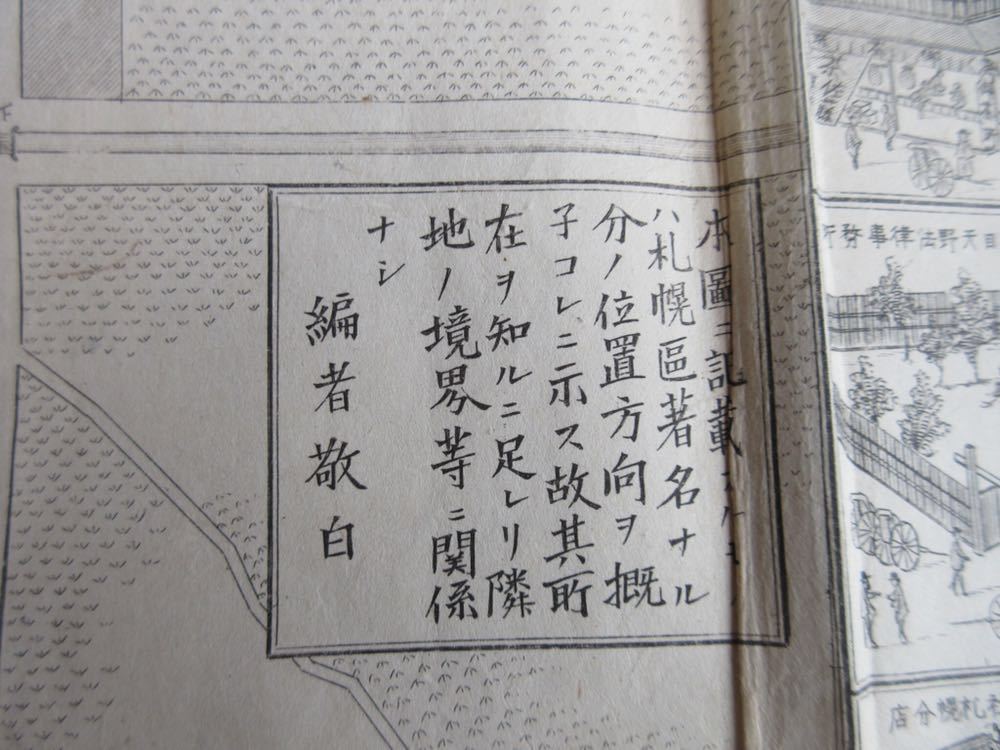 本圖ニ記載スルモノ
ハ札幌區著名ナル
分ノ位置方向ヲ概
子コレニ示ス故其所
在ヲ知ルニ足レリ隣
地ノ境界等ニ関係
ナシ
編者敬白
目天野法律事務所
札幌分店